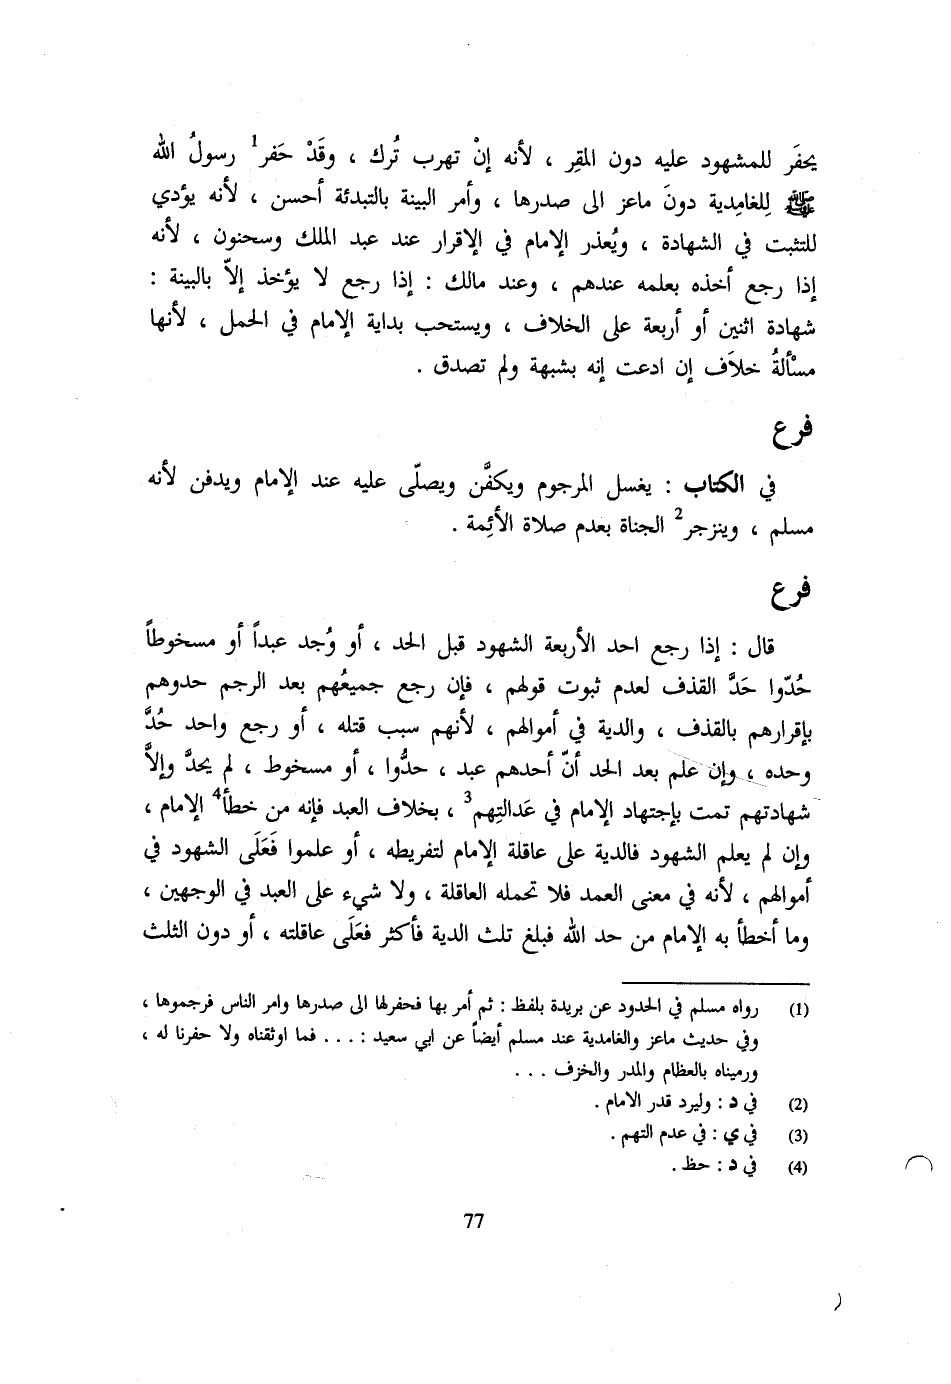 يحفَر للمشهود عليه دون المقِر ، لأنه إنْ تهرب تُرك ، وقَدْ حَفر1 رسولُ الله
ﷺ لِلغامِدية دونَ ماعز الى صدرها ، وأمر البينة بالتبدئة أحسن ، لأنه يؤدي
للتثبت في الشهادة ، ويُعذر الإمام في الإقرار عند عبد الملك وسحنون ، لأنه
إذا رجع أخذه بعلمه عندهم ، وعند مالك : إذا رجع لا يؤخذ إلاّ بالبينة :
شهادة اثنين أو أربعة على الخلاف ، ويستحب بداية الإمام في الحمل ، لأنها
مسْألةُ خلاَف إن ادعت إنه بشبهة ولم تصدق .
فرع
في الكتاب : يغسل المرجوم ويكفَّن ويصلّى عليه عند الإمام ويدفن لأنه
مسلم ، وينزجر2 الجناة بعدم صلاة الأئِمة .
فرع
قال : إذا رجع احد الأربعة الشهود قبل الحد ، أو وُجد عبداً أو مسخوطاً
حُدّوا حَدَّ القذف لعدم ثبوت قولهم ، فإن رجع جميعُهم بعد الرجم حدوهم
بإقرارهم بالقذف ، والدية في أموالهم ، لأنهم سبب قتله ، أو رجع واحد حُدَّ
وحده ، وإن علم بعد الحد أنّ أحدهم عبد ، حدُّوا ، أو مسخوط ، لم يحدَّ وإلاَّ
شهادتهم تمت بإجتهاد الإمام في عَدالتِهم3 ، بخلاف العبد فإنه من خطأ4 الإمام ،
وإن لم يعلم الشهود فالدية على عاقلة الإمام لتفريطه ، أو علموا فَعَلَى الشهود في
أموالهم ، لأنه في معنى العمد فلا تحمله العاقلة ، ولا شيء على العبد في الوجهين ،
وما أخطأ به الإمام من حد الله فبلغ ثلث الدية فأكثر فعَلَى عاقلته ، أو دون الثلث
(1) رواه مسلم في الحدود عن بريدة بلفظ : ثم أمر بها فحفرلها الى صدرها وامر الناس فرجموها ،
وفي حديث ماعز والغامدية عند مسلم أيضاً عن ابي سعيد : . . . فما اوثقناه ولا حفرنا له ،
ورميناه بالعظام والمدر والخزف . . .
(2) في د : وليرد قدر الامام .
(3) في ي : في عدم التهم .
(4) في د : حظ .
77